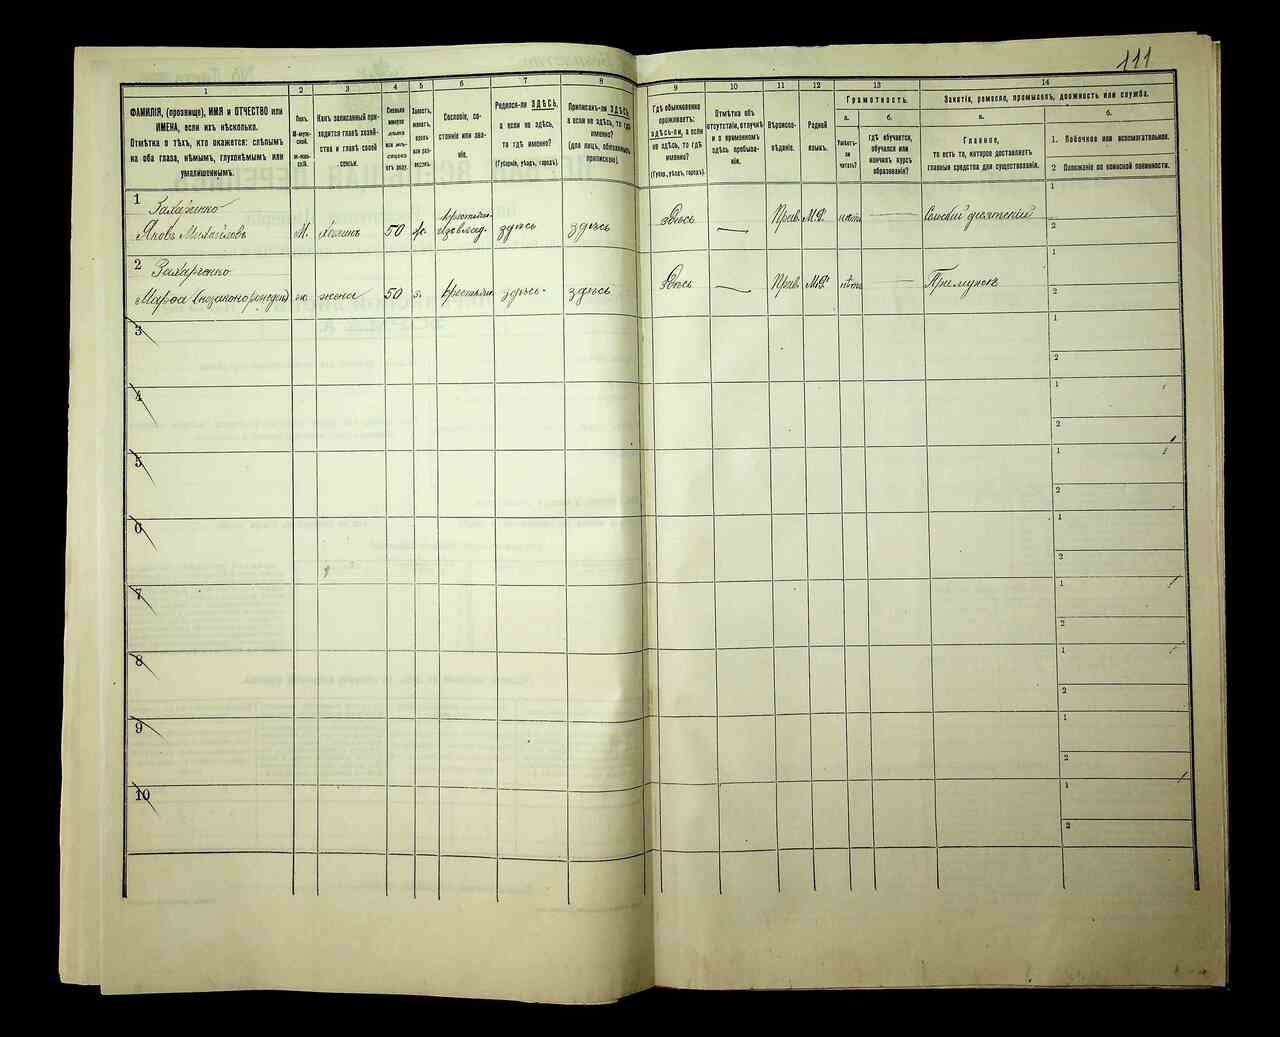 111
1 2 3 4 5 6 7 8 9 10 11 12 13 14
ФАМИЛІЯ, (прозвище), ИМЯ и ОТЧЕСТВО или
ИМЕНА, если ихъ нѣсколько.
Отмѣтка о тѣхъ, кто окажется: слѣпымъ
на оба глаза, нѣмымъ, глухонѣмымъ или
умалишеннымъ.
Полъ.
М-муж-
ской.
Ж-жен-
скій.
Какъ записанный при-
ходится главѣ хозяй-
ства и главѣ своей
семьи.
Сколько
минуло
лѣтъ
или мѣ-
сяцевъ
отъ роду.
Холостъ,
женатъ,
вдовъ
или раз-
веденъ.
Сословіе, со-
стояніе или зва-
ніе.
Родился-ли ЗДѢСЬ,
а если не здѣсь,
то гдѣ именно?
(Губернія, уѣздъ, городъ).
Приписанъ-ли ЗДѢСЬ,
а если не здѣсь, то гдѣ
именно?
(для лицъ, обязанныхъ
припискою).
Гдѣ обыкновенно
проживаетъ:
здѣсь-ли, а если
не здѣсь, то гдѣ
именно?
(Губер., уѣздъ, городъ).
Отмѣтка объ
отсутствіи, отлучкѣ
и о временномъ
здѣсь пребыва-
ніи.
Вѣроиспо-
вѣданіе.
Родной
языкъ.
Грамотность.
а.
Умѣетъ-
ли
читать?
б.
Гдѣ обучается,
обучался или
кончилъ курсъ
образованія?
Занятіе, ремесло, промыселъ, должность или служба.
а.
Главное,
то есть то, которое доставляетъ
главныя средства для существованія.
б.
1. Побочное или вспомогательное.
2 Положеніе по воинской повинности.
1
Яковъ Михайловъ М. хозяинъ 50 здѣсь здѣсь здѣсь Прав. М.Р.
2 Захарченко
Марфа (незаконорожден) ж. жена 50 з. здѣсь здѣсь здѣсь Прав. М.Р.
3
4
5
6
7
8
9
10
1
2
1
2
1
2
1
2
1
2
1
2
1
2
1
2
1
2
1
2